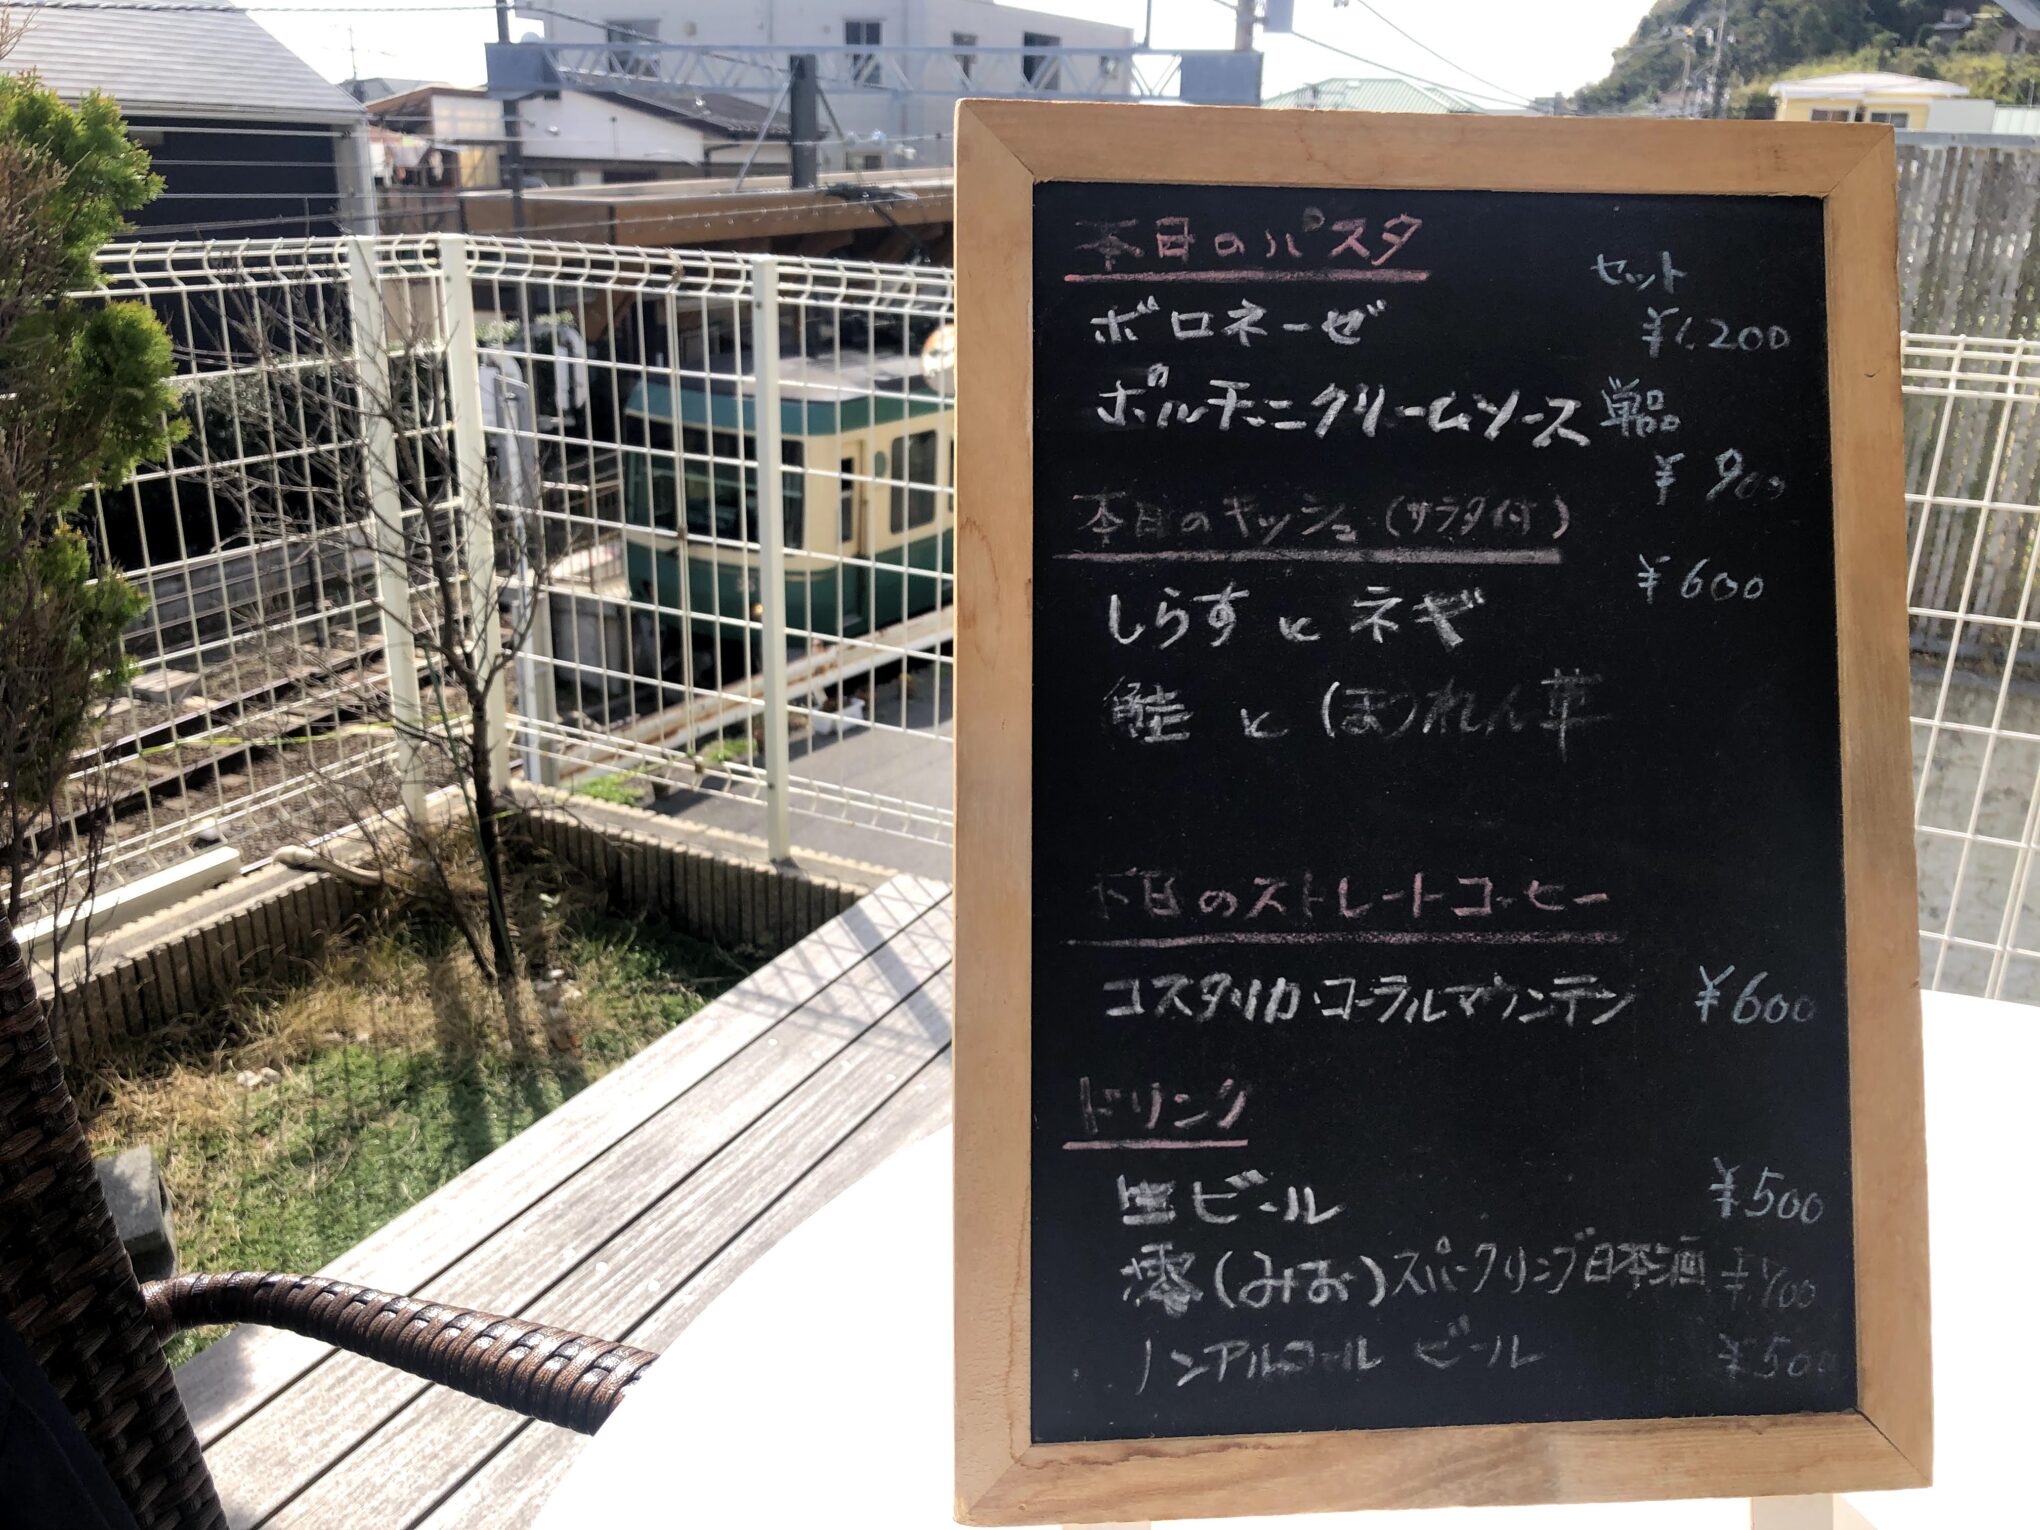 本日のパスタ
セット
ボロネーゼ ¥1,200
ポルチーニクリームソース 単品
¥900
本日のキッシュ(サラダ付)
¥600
しらすとネギ
鮭とほうれん草
本日のストレートコーヒー
コスタリカ・コーラルマウンテン ¥600
ドリンク
生ビール ¥500
澪(みお)スパークリング日本酒 ¥700
ノンアルコールビール ¥500